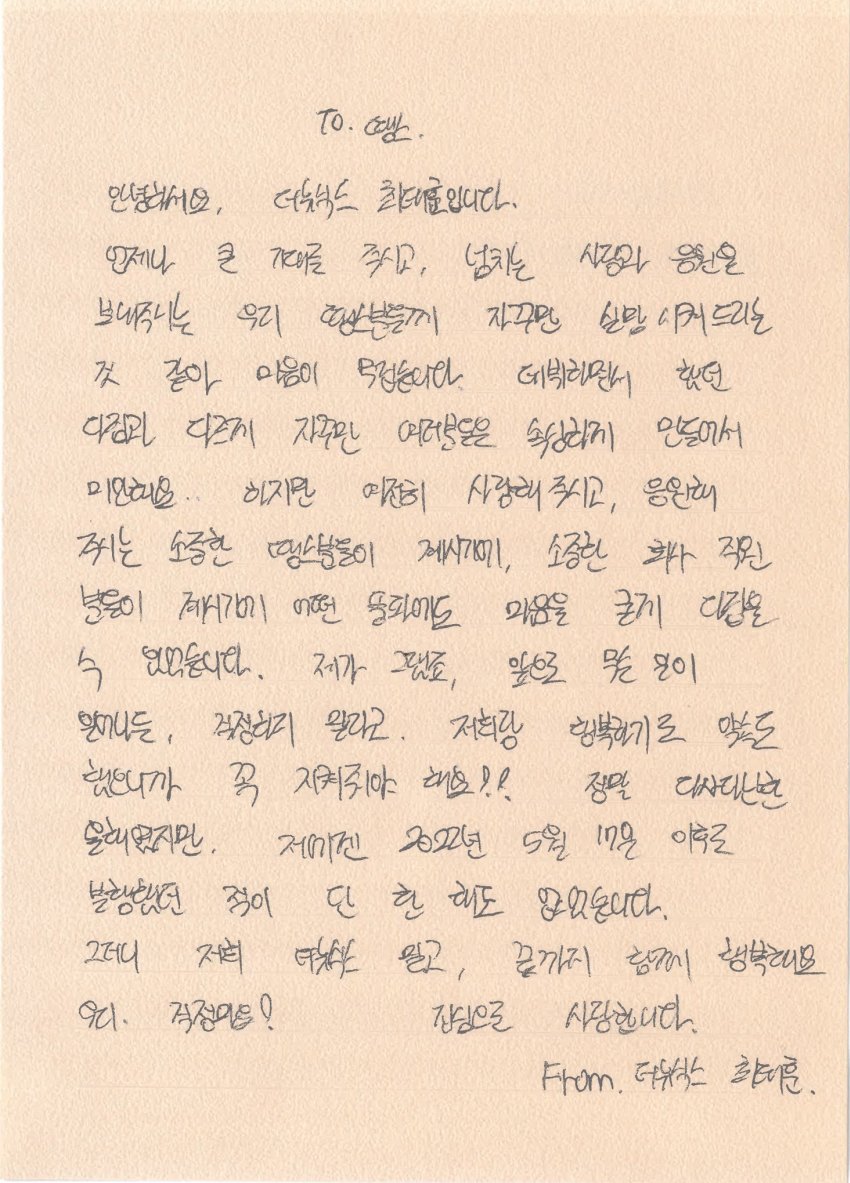 To. 땡스.
안녕하세요, 더뉴식스 최태훈입니다.
언제나 큰 기대를 주시고, 넘치는 사랑과 응원을
보내주시는 우리 땡스분들께 자꾸만 실망시켜드리는
것 같아 마음이 무겁습니다. 데뷔하면서 했던
다짐과 다르게 자꾸만 여러분들을 속상하게 만들어서
미안해요.. 하지만 여전히 사랑해주시고, 응원해
주시는 소중한 땡스분들이 계시기에, 소중한 회사 직원
분들이 계시기에 어떤 풍파에도 마음을 굳게 다잡을
수 있었습니다. 제가 그랬죠, 앞으로 무슨 일이
일어나든, 걱정하지 말라고. 저희랑 행복하기로 약속도
했으니까 꼭 지켜줘야 해요!! 정말 다사다난한
올해였지만. 제게겐 2022년 5월 17일 이후로
불행했던 적이 단 한 해도 없었습니다.
그러니 저희 더뉴식스 믿고, 끝까지 함께 행복해요
우리. 걱정마요! 진심으로 사랑합니다.
From. 더뉴식스 최태훈.